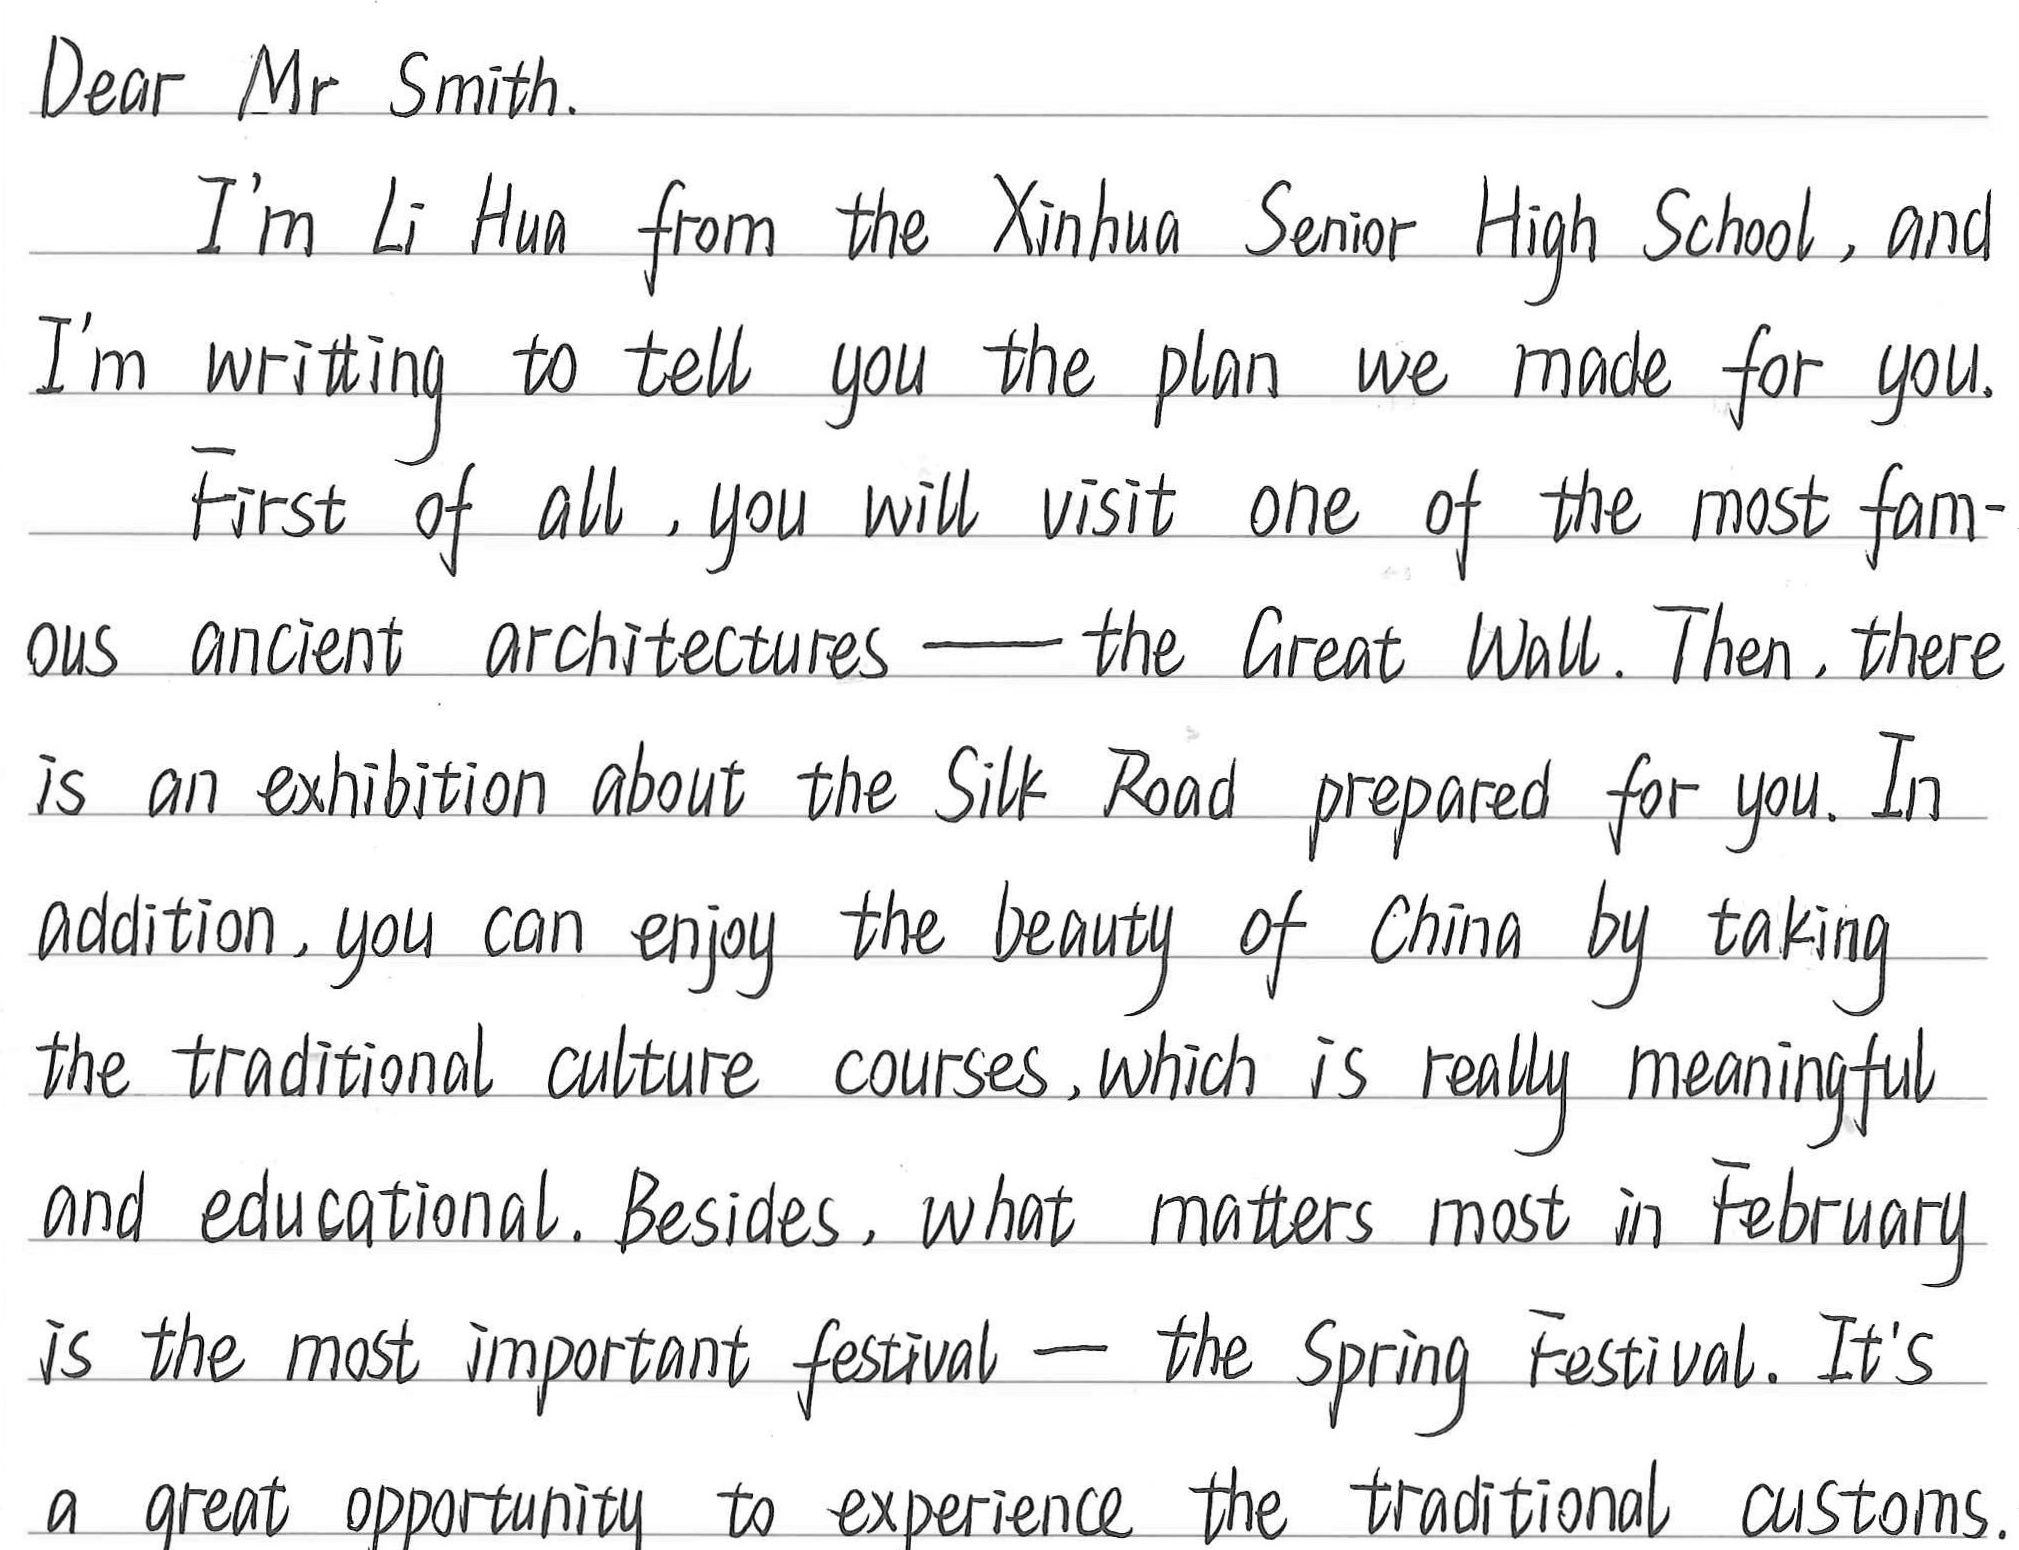 Dear Mr Smith.
I'm Li Hua from the Xinhua Senior High School, and
I'm writting to tell you the plan we made for you.
First of all, you will visit one of the most fam-
ous ancient architectures — the Great Wall. Then, there
is an exhibition about the Silk Road prepared for you. In
addition, you can enjoy the beauty of China by taking
the traditional culture courses, which is really meaningful
and educational. Besides, what matters most in February
is the most important festival — the Spring Festival. It's
a great opportunity to experience the traditional customs.